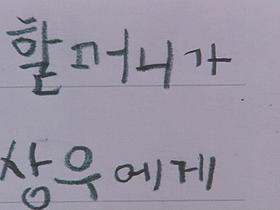 할머니가
상우에게